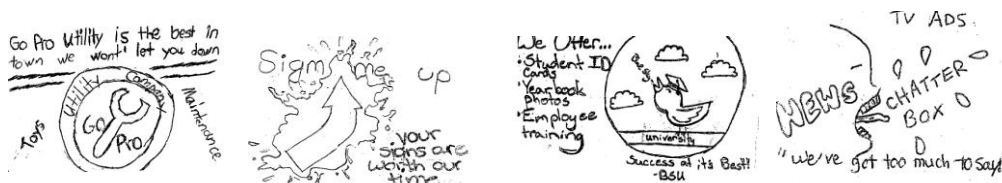 Go Pro Utility is the best in
town we wont' let you down
Utility Company
Go
Pro
Toys
Maintenance
Sign me up
your
signs are
worth our
time
We Utter...
• Student ID
cards
• Yearbook
photos
• Employee
training
university
Success at it's Best!
-BSU
TV ADS
NEWS
CHATTER
BOX
"We've got too much to say